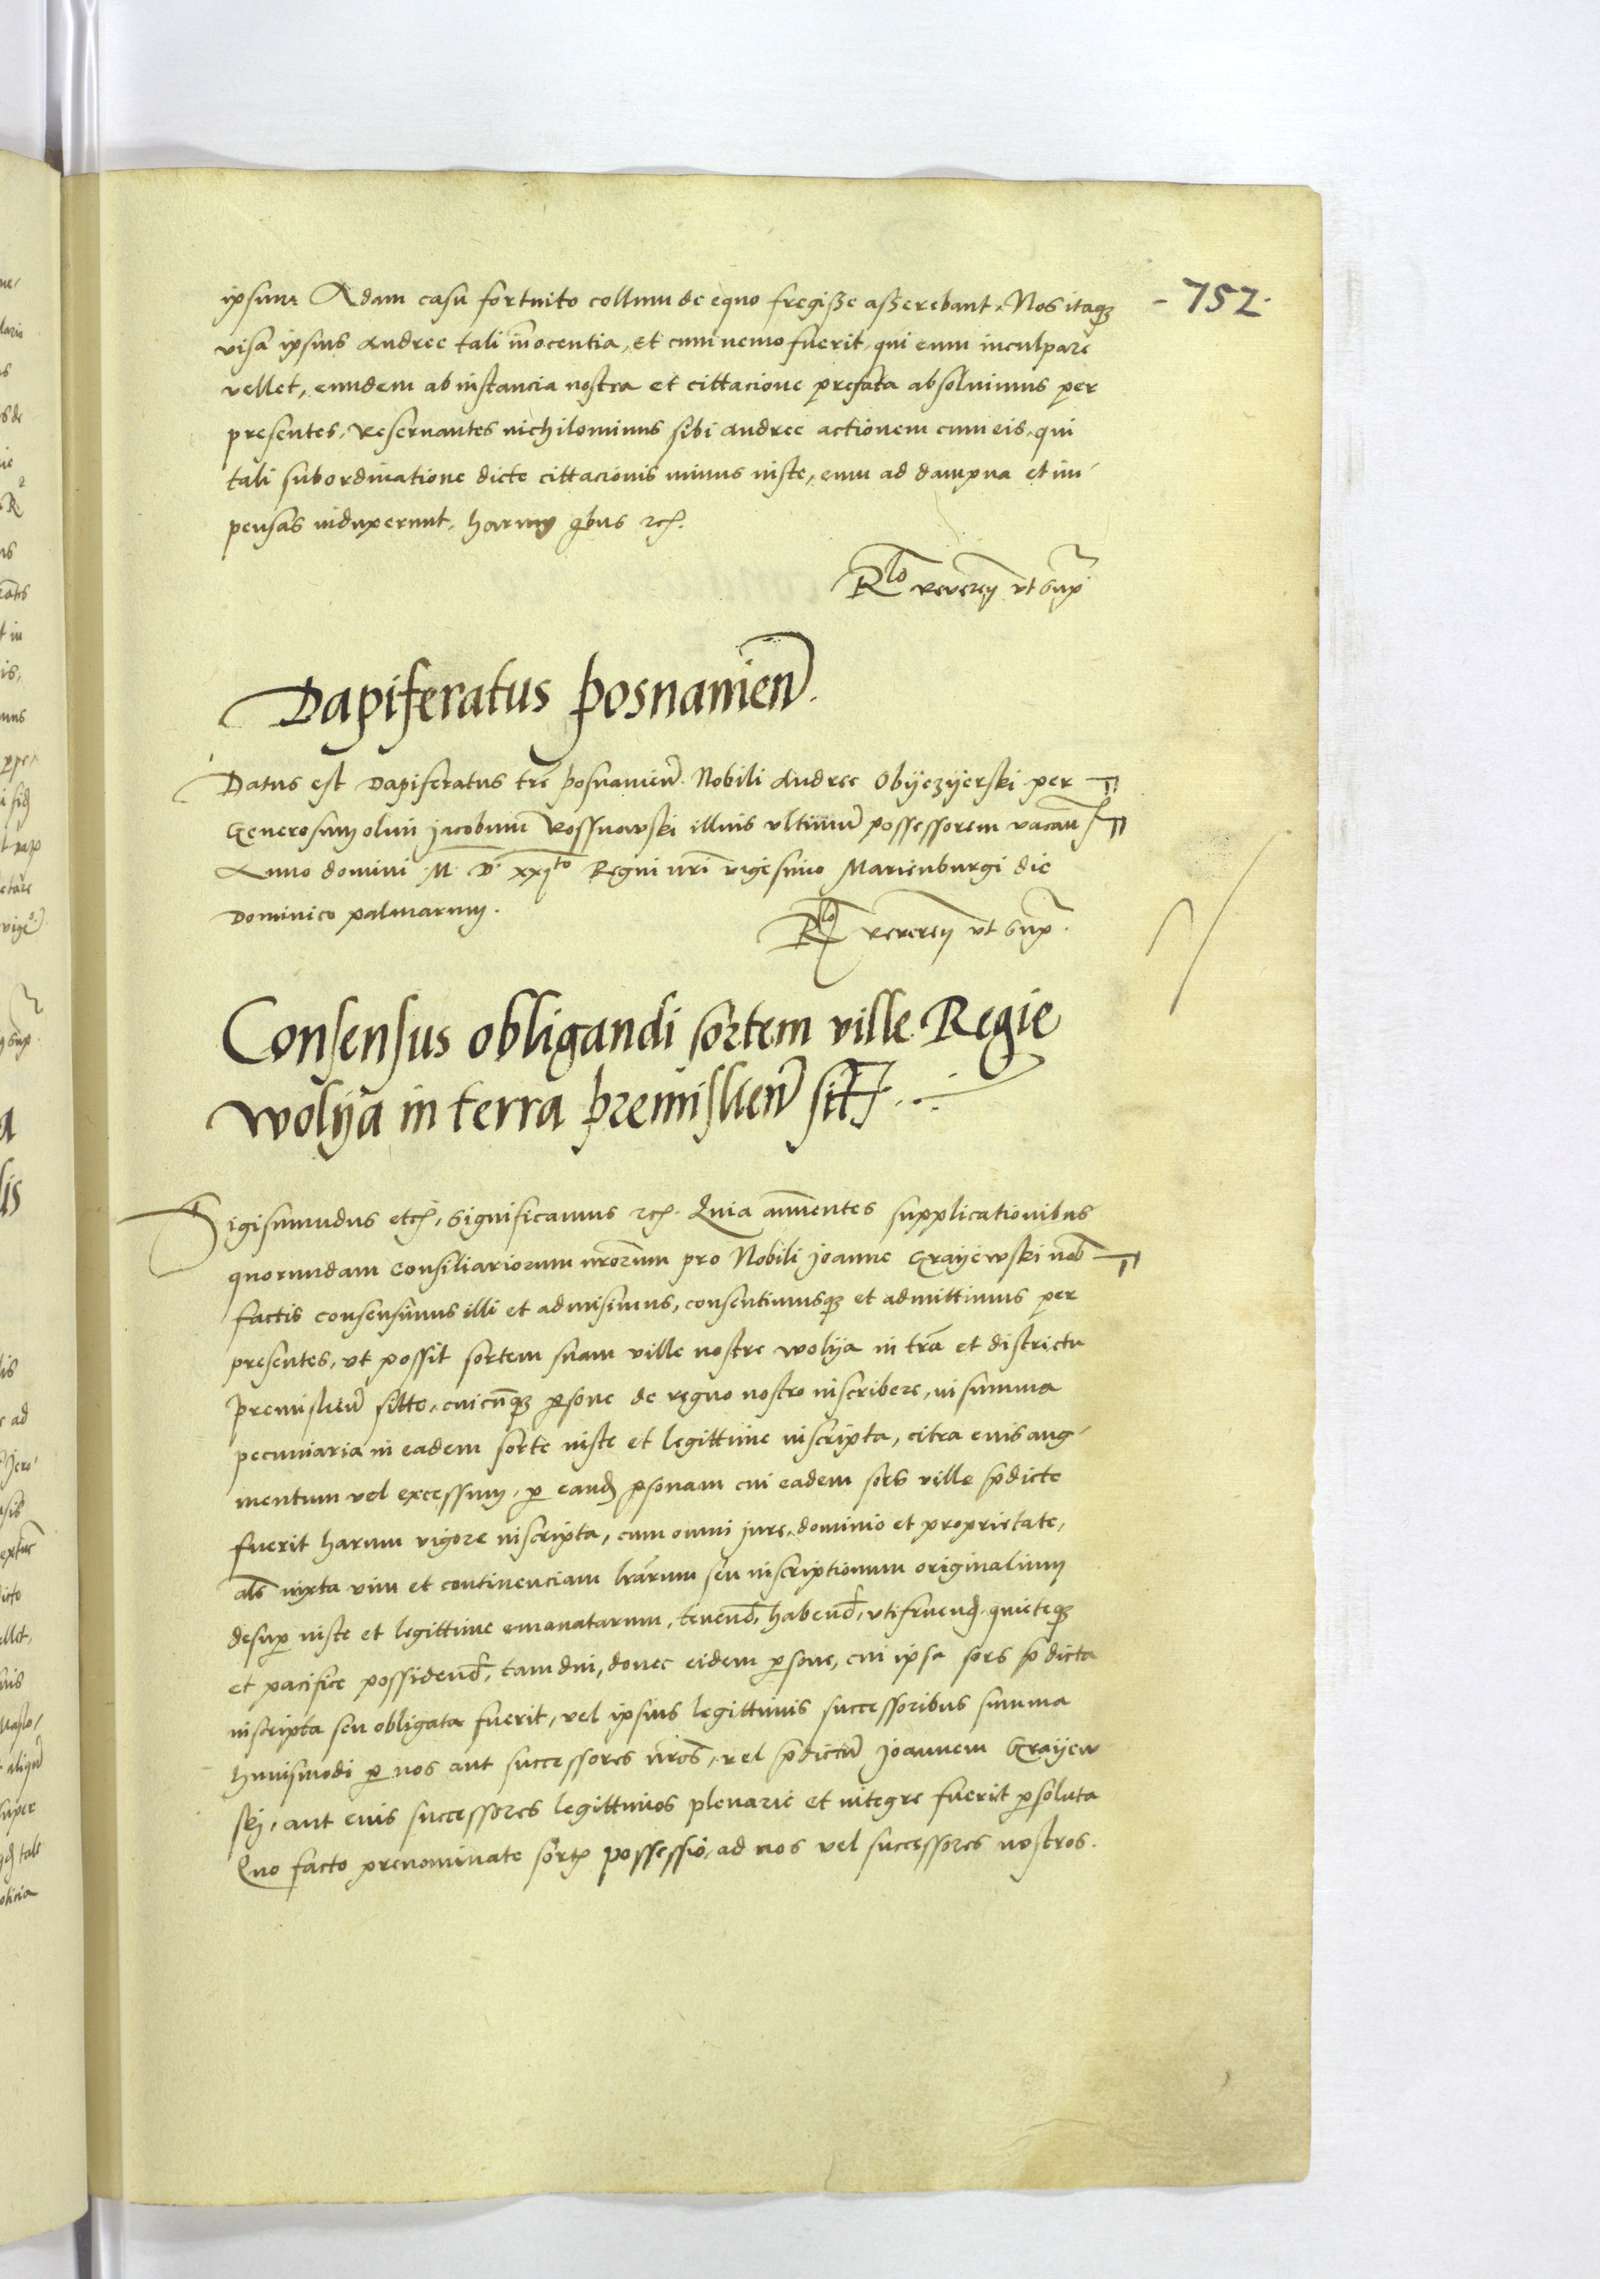 - 752.
ipsum Adam casu fortuito collum de equo fregisse asserebant. Nos itaq₃
visa ipsius Andree tali in̄ocentia, et cum nemo fuerit, qui eum inculpare
vellet, eundem ab instancia nostra et cittacione prefata absoluimus per
presentes, Reseruantes nichilominus sibi Andree actionem cum eis, qui
tali subordinatione dicte cittacionis minus iuste, eum ad dampna et im-
pensas induxerunt, harum qbus etc.
Rlo reveren ut sup
Dapiferatus Posnanien̄.
Datus est Dapiferatus tre Posnanien̄. Nobili Andree Obyezyerski per
Generosum olim Jacobum Rossnowski illius ultimum possessorem vacan
Anno domini M. D. xxjto Regni nri vigesimo Marienburgi die
Dominico palmarum.
Rlo reveren ut sup.
Consensus obligandi sortem ville Regie
Wolya in terra Premislien̄ sit.
Sigismundus etc, significamus etc. Quia annuentes supplicationibus
quorundam consiliariorum nrorum pro Nobili Joanne Grayewski nob
factis consensimus illi et admisimus, consentimusq₃ et admittimus per
presentes, ut possit sortem suam ville nostre Wolya in tra et districtu
Premislien̄ sitte, cuicunq₃ psone de regno nostro inscribere, in summa
pecuniaria in eadem sorte iuste et legittime inscripta, citra eius aug-
mentum vel excessum, p eand psonam cui eadem sors ville pdicte
fuerit harum vigore inscripta, cum omni jure, dominio et proprietate,
als iuxta vim et continenciam lrarum seu inscriptionum originalium
desup iuste et legittime emanatarum, tenend, habend, utifruend, quieteq₃
et pacifice possidend, tamdiu, donec eidem psone, cui ipsa sors pdicta
inscripta seu obligata fuerit, vel ipsius legittimis successoribus summa
huiusmodi p nos aut successores nros, vel pdictum Joannem Grayew
skj, aut eius successores legittimos plenarie et integre fuerit psoluta
Quo facto prenominate sortis possessio, ad nos vel successores nostros.